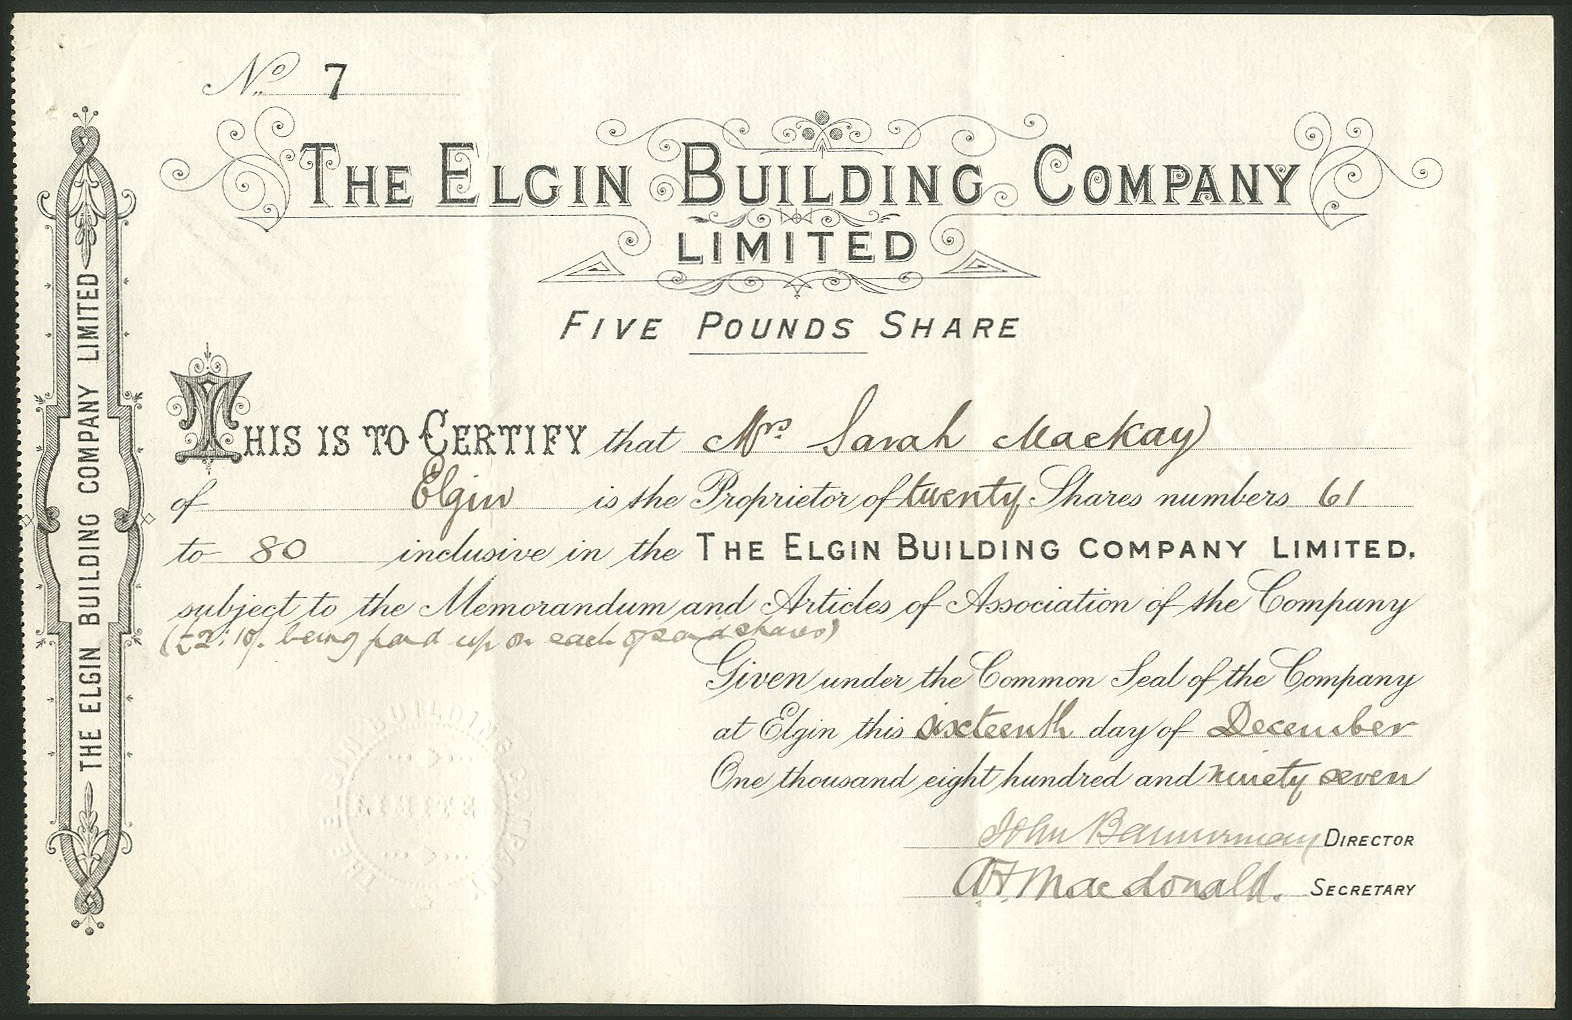 No. 7
THE ELGIN BUILDING COMPANY
LIMITED
FIVE POUNDS SHARE
THIS IS TO CERTIFY that Mrs Sarah Mackay
of Elgin is the Proprietor of twenty Shares numbers 61
to 80 inclusive in the THE ELGIN BUILDING COMPANY LIMITED,
subject to the Memorandum and Articles of Association of the Company
(£2:10/. being paid up on each of said shares)
Given under the Common Seal of the Company
at Elgin this sixteenth day of December
One thousand eight hundred and ninety seven
John Bannerman DIRECTOR
A.F. Macdonald. SECRETARY
THE ELGIN BUILDING COMPANY LIMITED
THE ELGIN BUILDING COMPANY
LIMITED